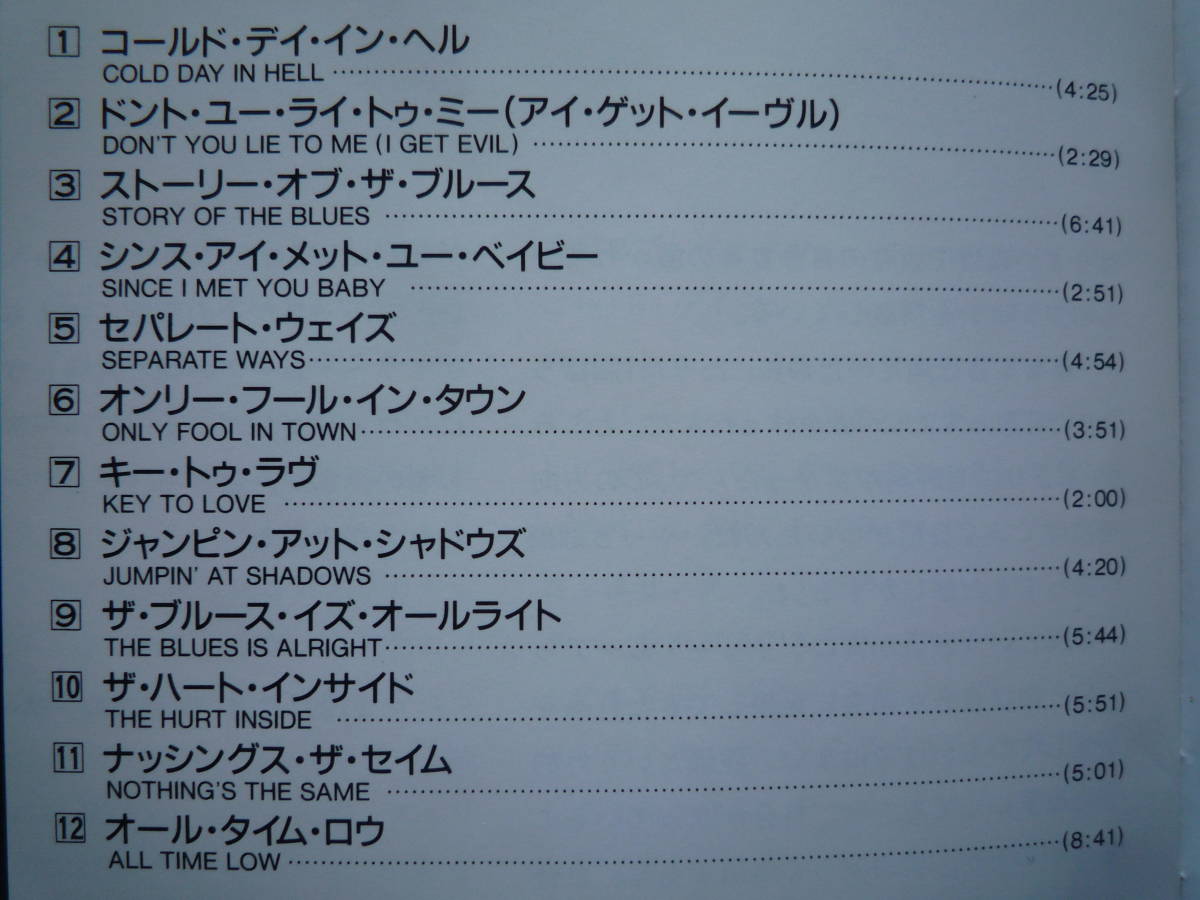 1 コールド・デイ・イン・ヘル
COLD DAY IN HELL (4:25)
2 ドント・ユー・ライ・トゥ・ミー(アイ・ゲット・イーヴル)
DON'T YOU LIE TO ME (I GET EVIL) (2:29)
3 ストーリー・オブ・ザ・ブルース
STORY OF THE BLUES (6:41)
4 シンス・アイ・メット・ユー・ベイビー
SINCE I MET YOU BABY (2:51)
5 セパレート・ウェイズ
SEPARATE WAYS (4:54)
6 オンリー・フール・イン・タウン
ONLY FOOL IN TOWN (3:51)
7 キー・トゥ・ラヴ
KEY TO LOVE (2:00)
8 ジャンピン・アット・シャドウズ
JUMPIN' AT SHADOWS (4:20)
9 ザ・ブルース・イズ・オールライト
THE BLUES IS ALRIGHT (5:44)
10 ザ・ハート・インサイド
THE HURT INSIDE (5:51)
11 ナッシングス・ザ・セイム
NOTHING'S THE SAME (5:01)
12 オール・タイム・ロウ
ALL TIME LOW (8:41)